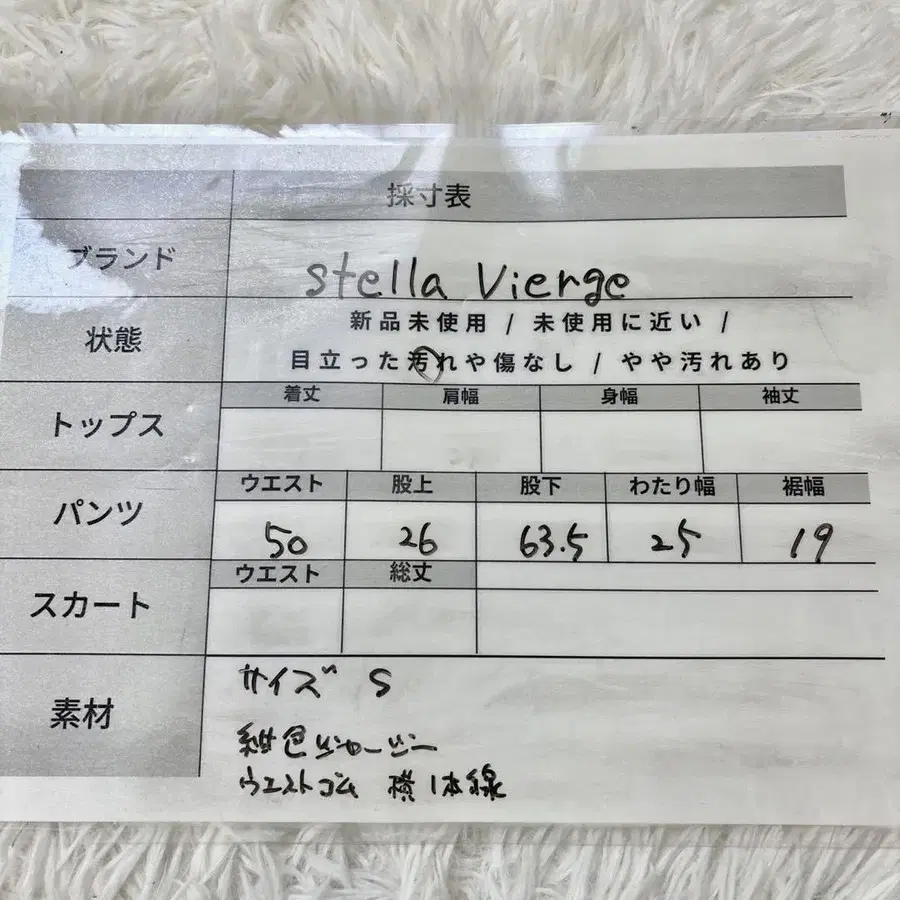 採寸表
ブランド stella Vierge
状態 新品未使用 / 未使用に近い /
目立った汚れや傷なし / やや汚れあり
トップス 着丈 肩幅 身幅 袖丈
パンツ ウエスト 股上 股下 わたり幅 裾幅
50 26 63.5 25 19
スカート ウエスト 総丈
素材 サイズ S
紺色ジャージー
ウエストゴム 横1本線